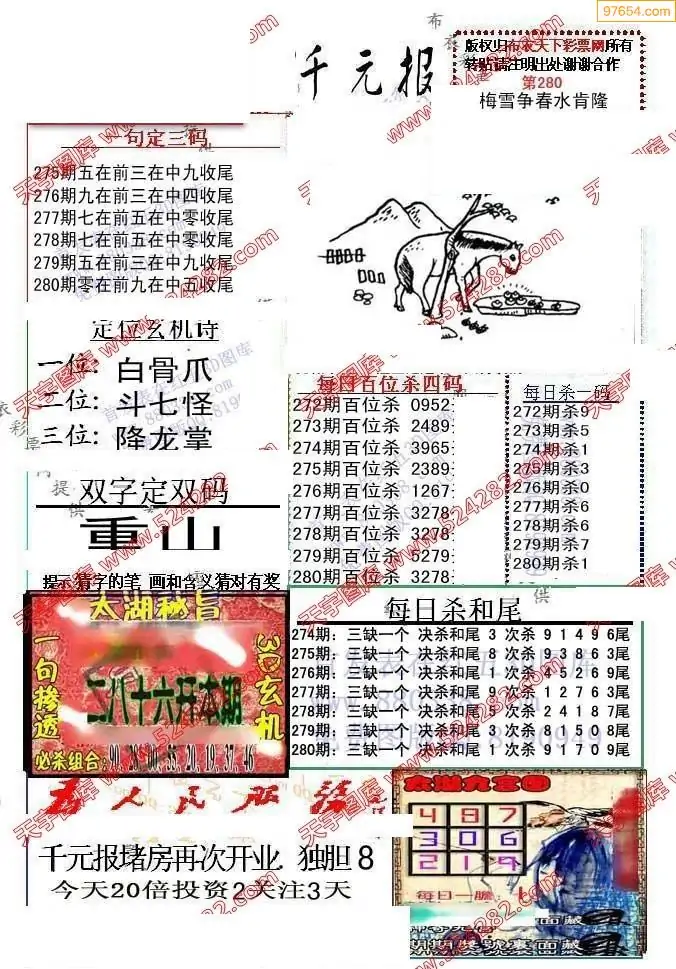 97654.com
千元报
版权归布衣天下彩票网所有
转贴请注明出处谢谢合作
第280
梅雪争春水肯隆
一句定三码
275期五在前三在中九收尾
276期九在前三在中四收尾
277期七在前五在中零收尾
278期七在前五在中零收尾
279期五在前三在中九收尾
280期零在前九在中五收尾
定位玄机诗
一位: 白骨爪
二位: 斗七怪
三位: 降龙掌
每日百位杀四码
272期百位杀 0952
273期百位杀 2489
274期百位杀 3965
275期百位杀 2389
276期百位杀 1267
277期百位杀 3278
278期百位杀 3278
279期百位杀 5279
280期百位杀 3278
每日杀一码
272期杀9
273期杀5
274期杀1
275期杀3
276期杀0
277期杀6
278期杀6
279期杀7
280期杀1
双字定双码
重山
提示猜字的笔 画和含义猜对有奖
太湖秘旨
一句惨透
3D玄机
二八十六开本期
必杀组合: 90, 28, 00, 55, 20, 19, 37, 46
每日杀和尾
274期: 三缺一个 决杀和尾 3 次杀 9 1 4 9 6尾
275期: 三缺一个 决杀和尾 8 次杀 9 3 8 6 3尾
276期: 三缺一个 决杀和尾 1 次杀 4 5 2 6 9尾
277期: 三缺一个 决杀和尾 9 次杀 1 2 7 6 3尾
278期: 三缺一个 决杀和尾 7 次杀 2 4 1 8 7尾
279期: 三缺一个 决杀和尾 3 次杀 8 1 5 0 8尾
280期: 三缺一个 决杀和尾 1 次杀 9 1 7 0 9尾
为人民服务
千元报堵房再次开业 独胆 8
今天20倍投资2关注3天
太湖九宫图
4 8 7
3 0 6
2 1 9
每日一胆:
期期奖號裏面藏
天宇图库 www.524282.com